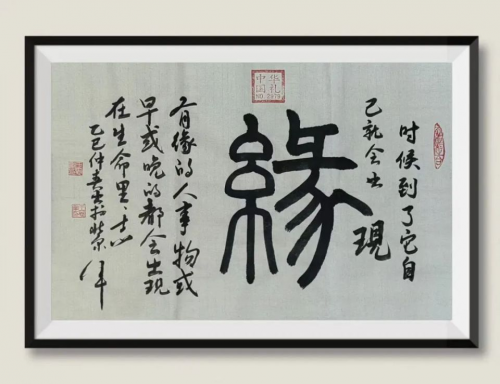 时候到了它自
己就会出
現
华礼
中国
緣
有缘的人事物或
早或晚的都会出现
在生命里
乙巳仲春书北京